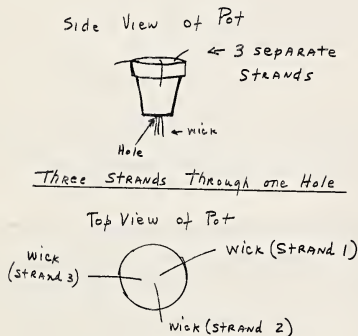 Side View of Pot
← 3 SEPARATE
STRANDS
Hole
← wick
Three STRANDS Through one Hole
Top View of Pot
wick
(STRAND 3)
wick (STRAND 1)
wick (STRAND 2)